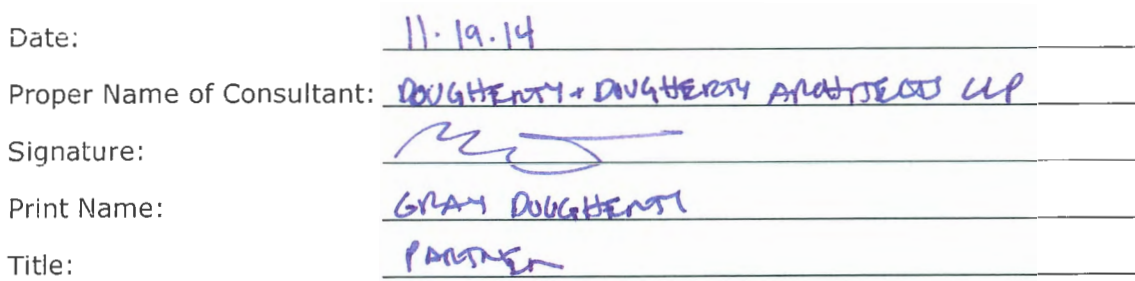 Date: 11.19.14
Proper Name of Consultant: DOUGHERTY + DOUGHERTY ARCHITECTS LLP
Signature:
Print Name: GRAY DOUGHERTY
Title: PARTNER